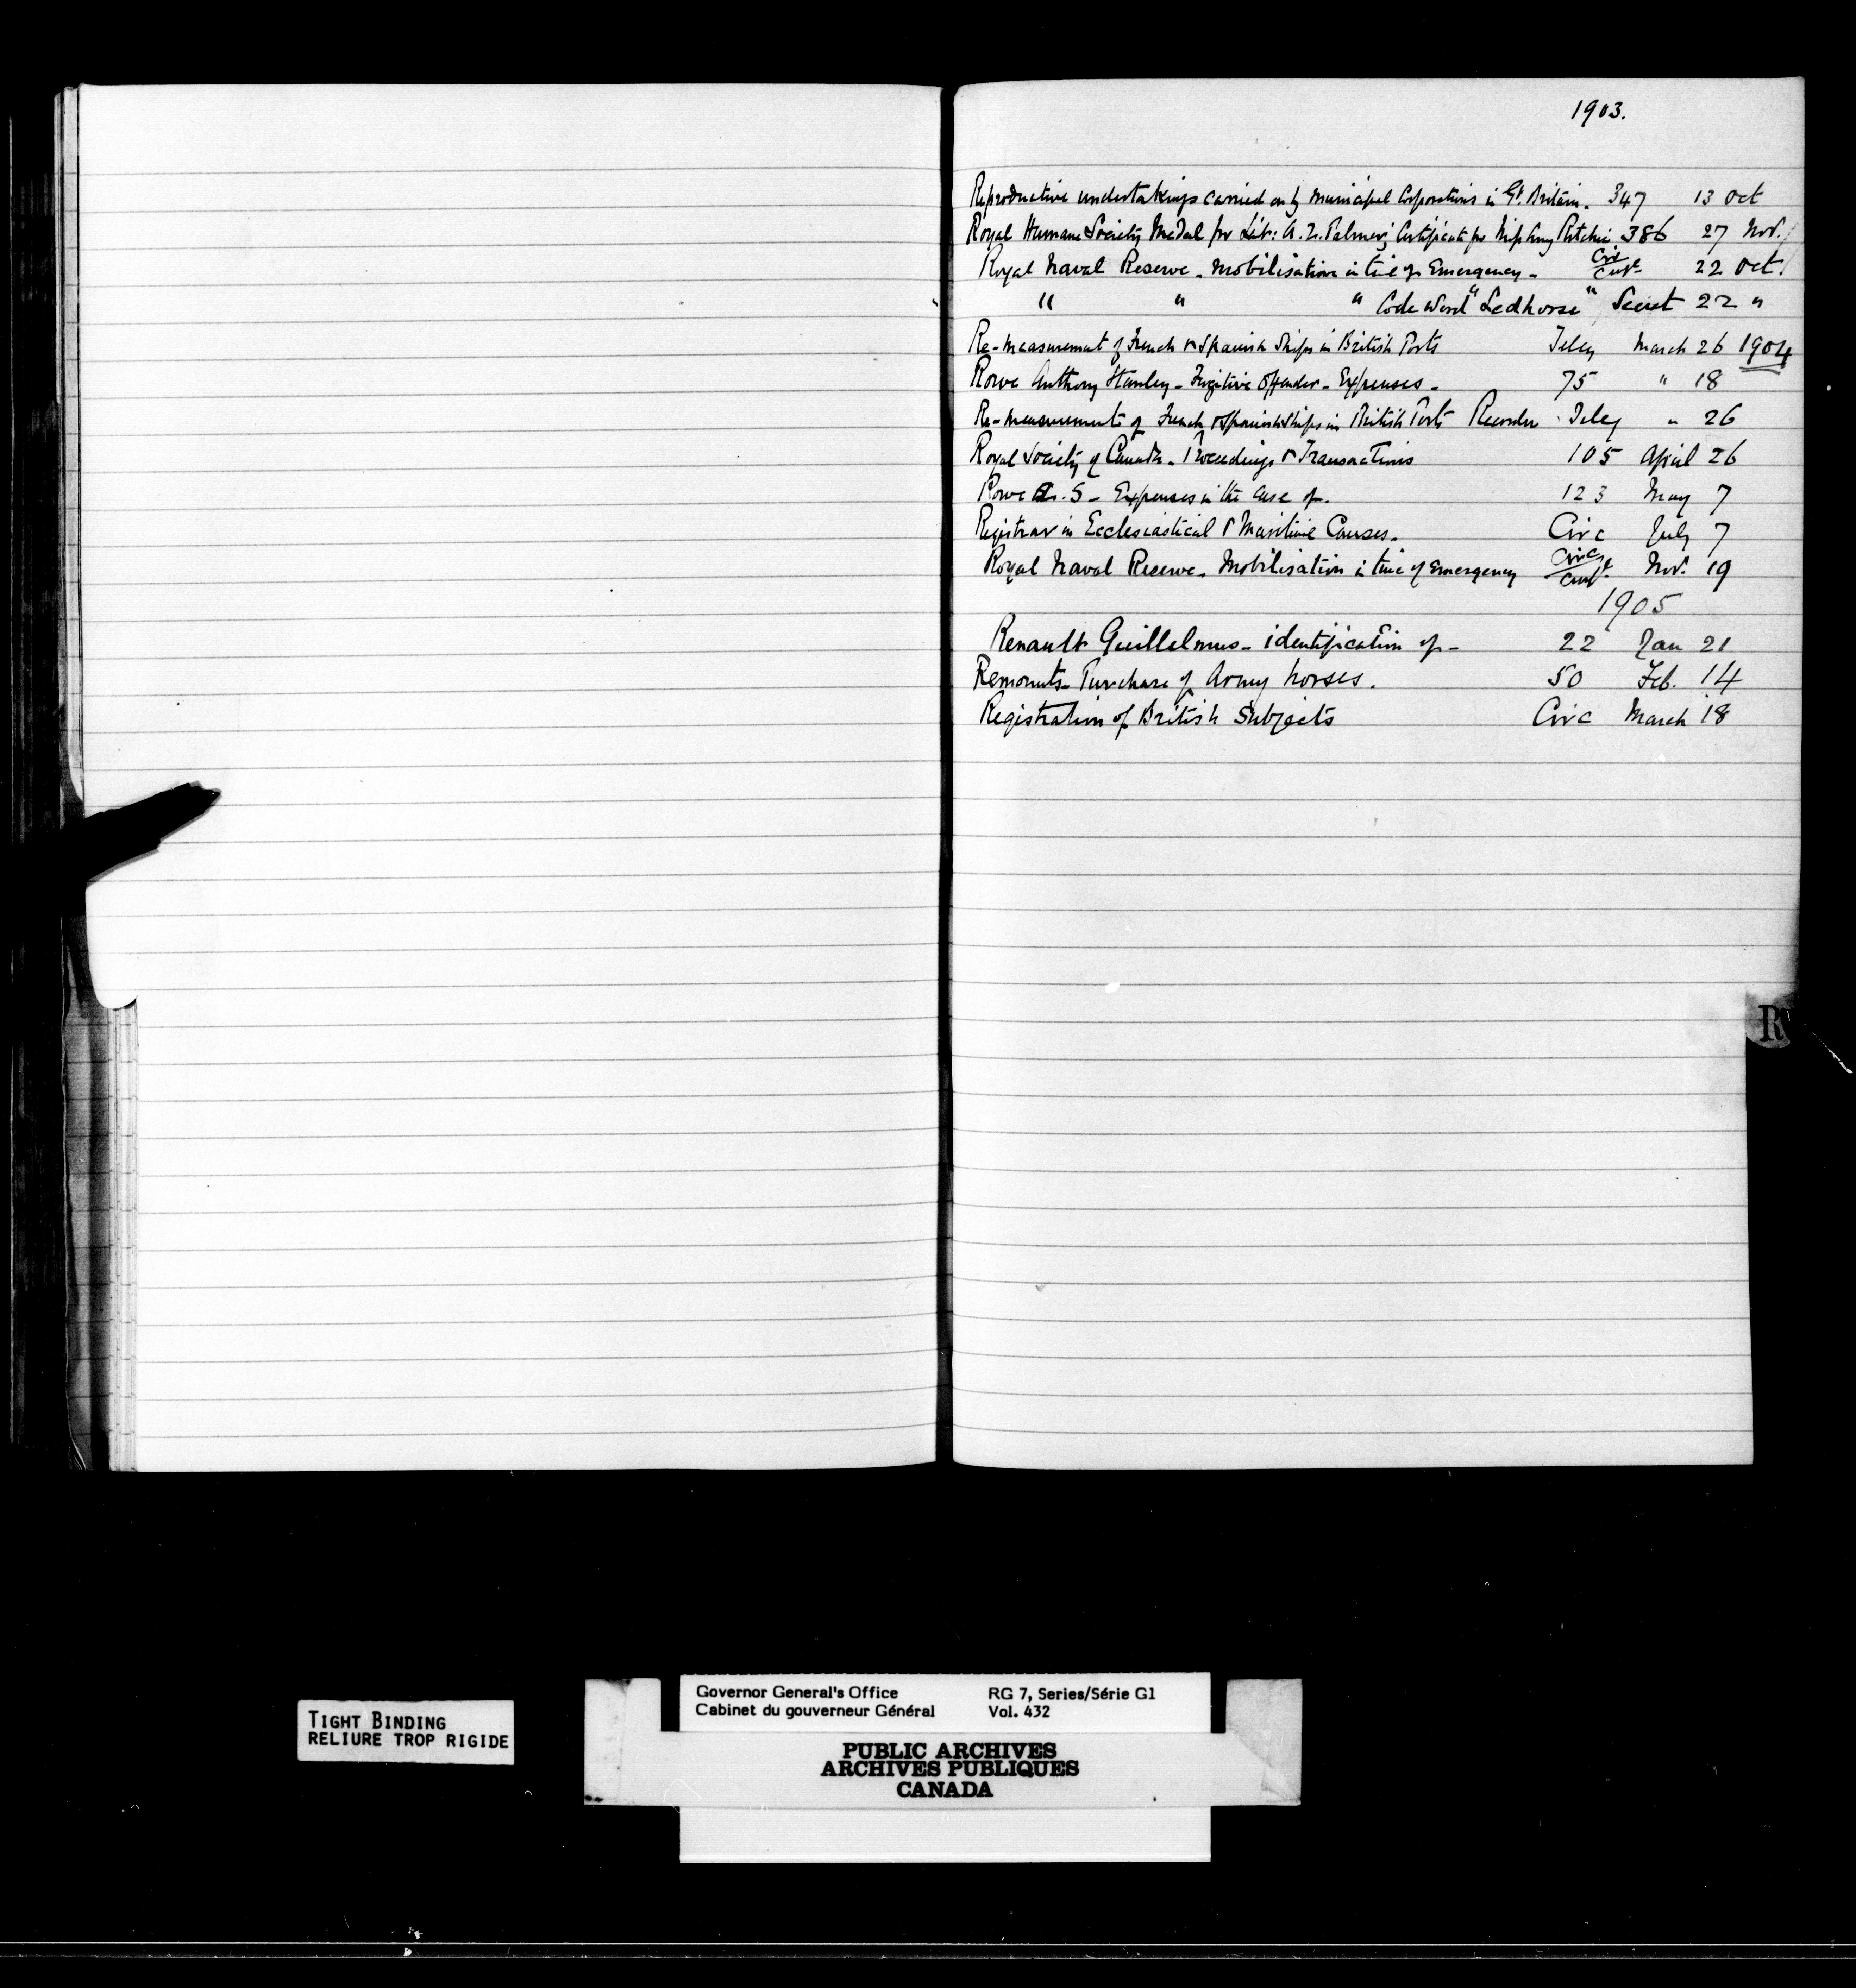 1903.
Reproductive undertakings carried on by Municipal Corporations in Gt. Britain. 347 13 Oct
Royal Humane Society Medal for Lt: A. Z. Palmer; Certificate for Miss Amy Ritchie 386 27 Nov.
Royal Naval Reserve - Mobilisation in time of Emergency - Cir/Conf 22 Oct.
" " " Code Word "Ledhorse" Secret 22 "
Re-measurement of French & Spanish Ships in British Ports Teleg March 26 1904
Rowe Anthony Stanley - Fugitive Offender - Expenses - 75 " 18
Re-measurements of French & Spanish Ships in British Ports Recorder Teleg " 26
Royal Society of Canada - Proceedings & Transactions 105 April 26
Rowe A. S - Expenses in the case of. 123 May 7
Registrar in Ecclesiastical & Maritime Causes. Circ July 7
Royal Naval Reserve - Mobilisation in time of Emergency Circ/Conf Nov. 19
1905
Renault Guillelmus - identification of - 22 Jan 21
Remounts - Purchase of Army horses. 50 Feb. 14
Registration of British Subjects Circ March 18
R
TIGHT BINDING
RELIURE TROP RIGIDE
Governor General's Office RG 7, Series/Série G1
Cabinet du gouverneur Général Vol. 432
PUBLIC ARCHIVES
ARCHIVES PUBLIQUES
CANADA